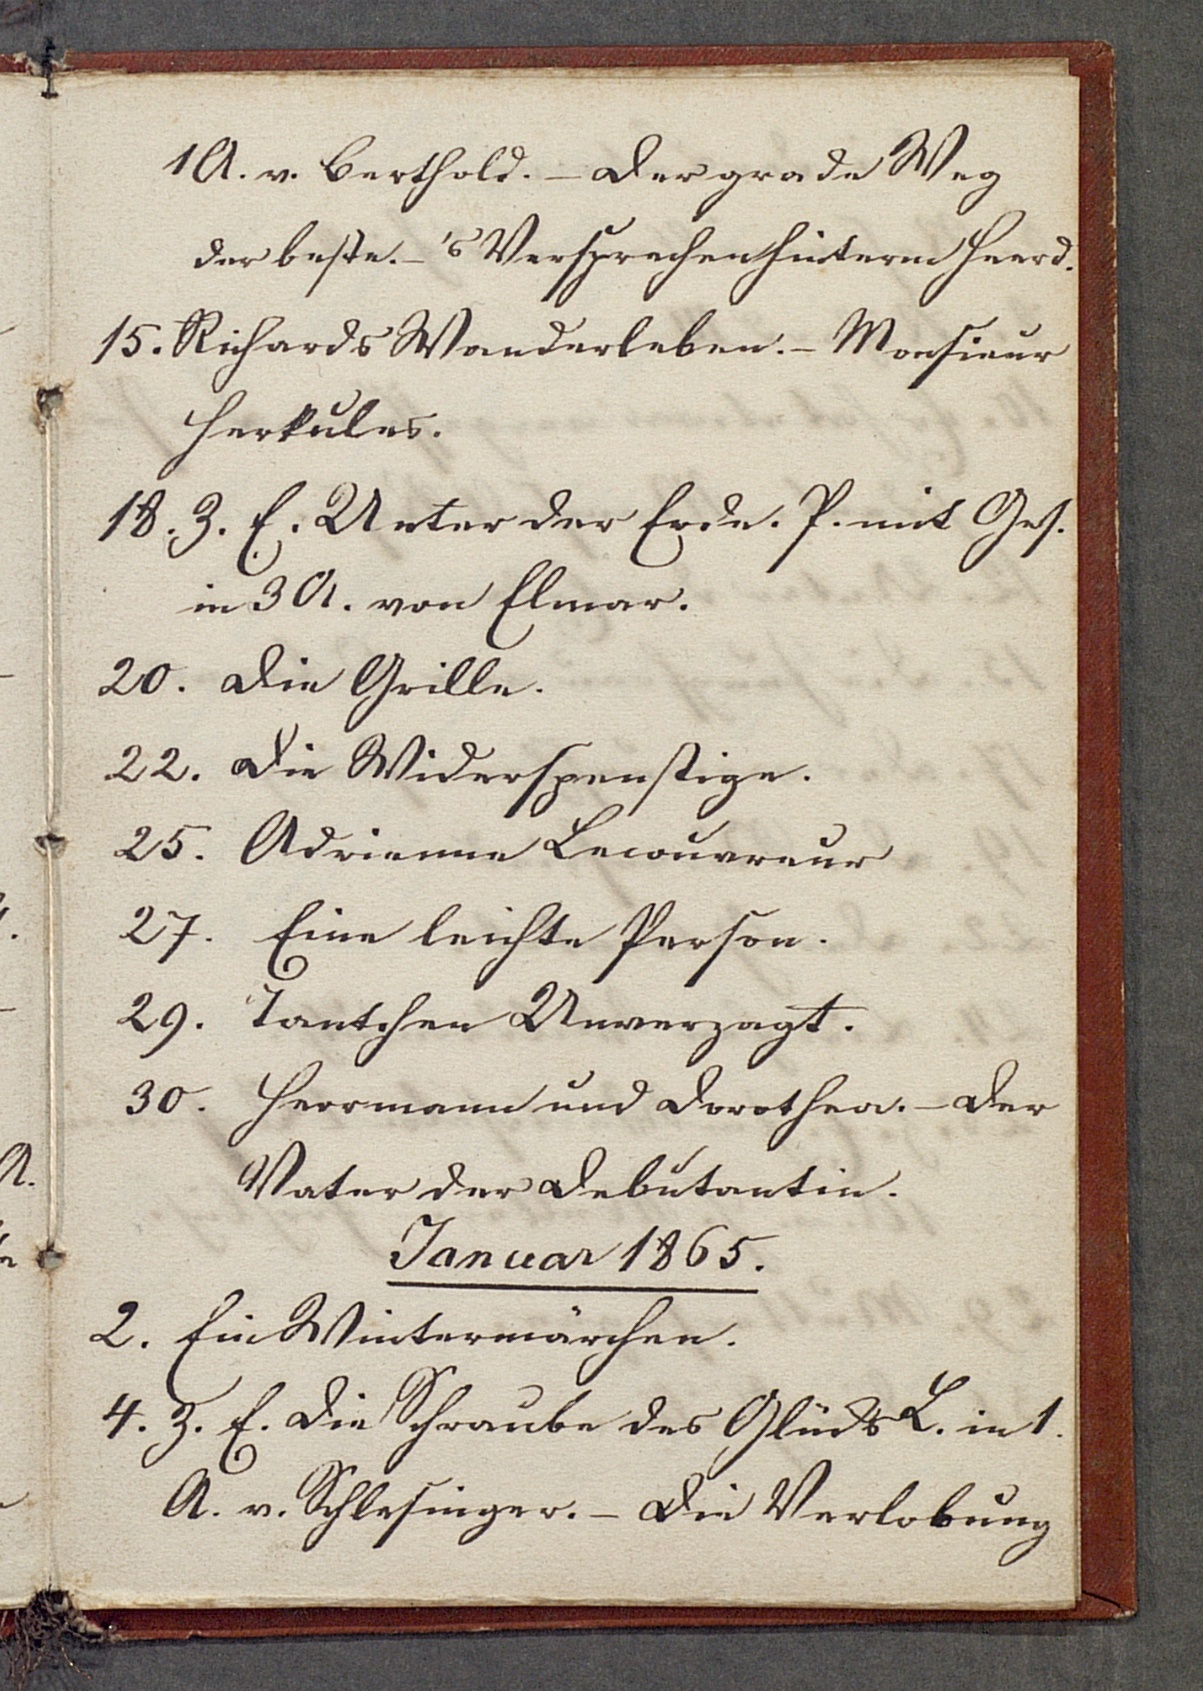 1 A. v. Berthold. – Der grade Weg
der beste. – 's Versprechen hinterm Heerd.
15. Richards Wanderleben. – Monsieur
Herkules.
18. Z. E. Unter der Erde. P. mit Ges.
in 3 A. von Elmar.
20. Die Grille.
22. Die Widerspenstige.
25. Adrienne Lecouvreur
27. Eine leichte Person.
29. Tantchen Unverzagt.
30. Herrmann und Dorothea. – Der
Vater der Debütantin.
Januar 1865.
2. Ein Wintermärchen.
4. Z. E. Die Schraube des Glücks L. in 1.
A. v. Schlesinger. – Die Verlobung